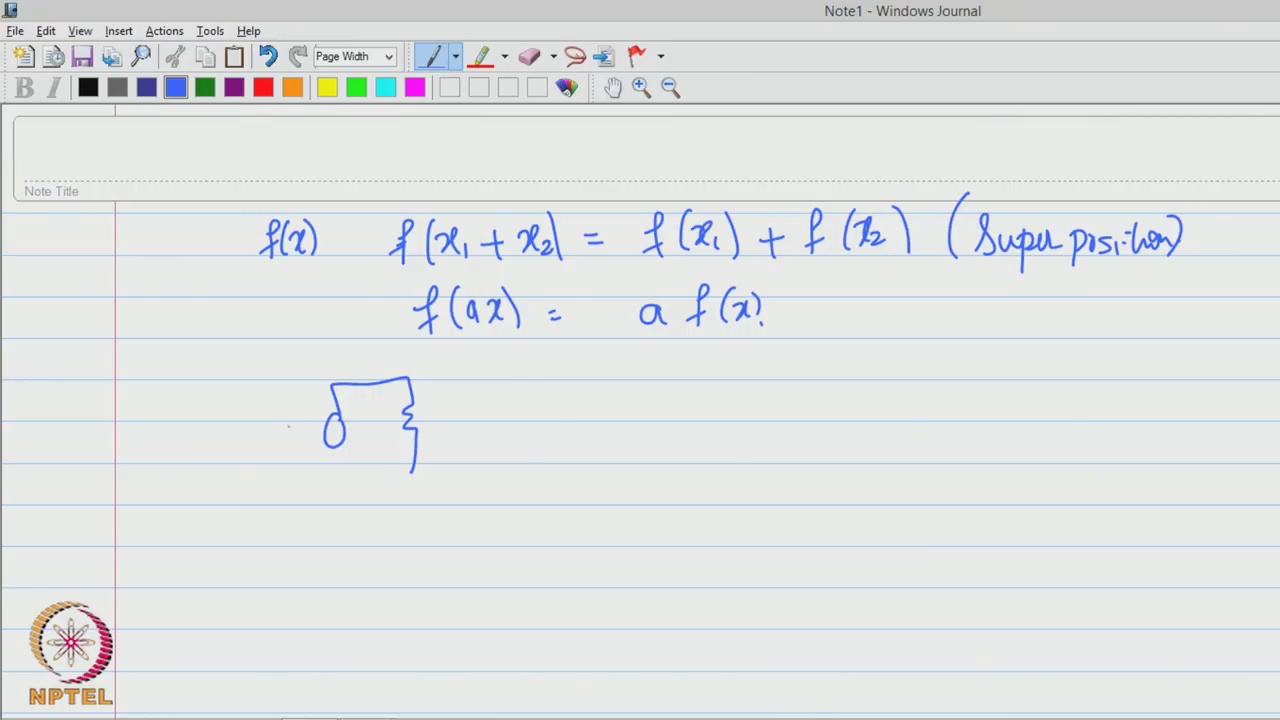 Note1 - Windows Journal
File Edit View Insert Actions Tools Help
Page Width
B I
Note Title
f(x) f(x₁ + x₂) = f(x₁) + f(x₂) (Superposition)
f(ax) = a f(x)
NPTEL